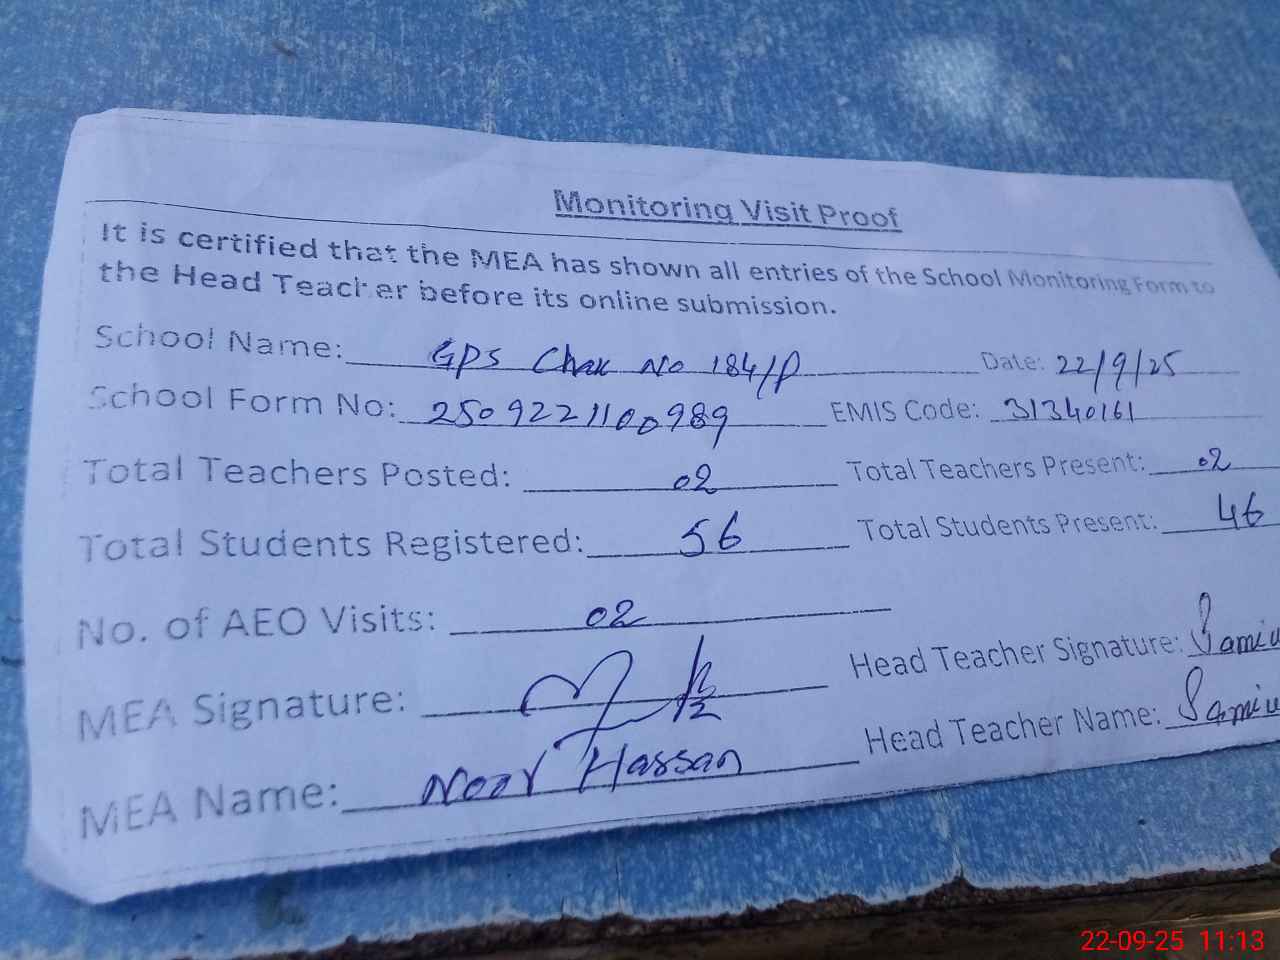 Monitoring Visit Proof
It is certified that the MEA has shown all entries of the School Monitoring Form to
the Head Teacher before its online submission.
School Name: GPS Chak No 184/P Date: 22/9/25
School Form No: 2509221100989 EMIS Code: 31340161
Total Teachers Posted: 02 Total Teachers Present: 02
Total Students Registered: 56 Total Students Present: 46
No. of AEO Visits: 02
MEA Signature: Head Teacher Signature:
MEA Name: Noor Hassan Head Teacher Name:
22-09-25 11:13